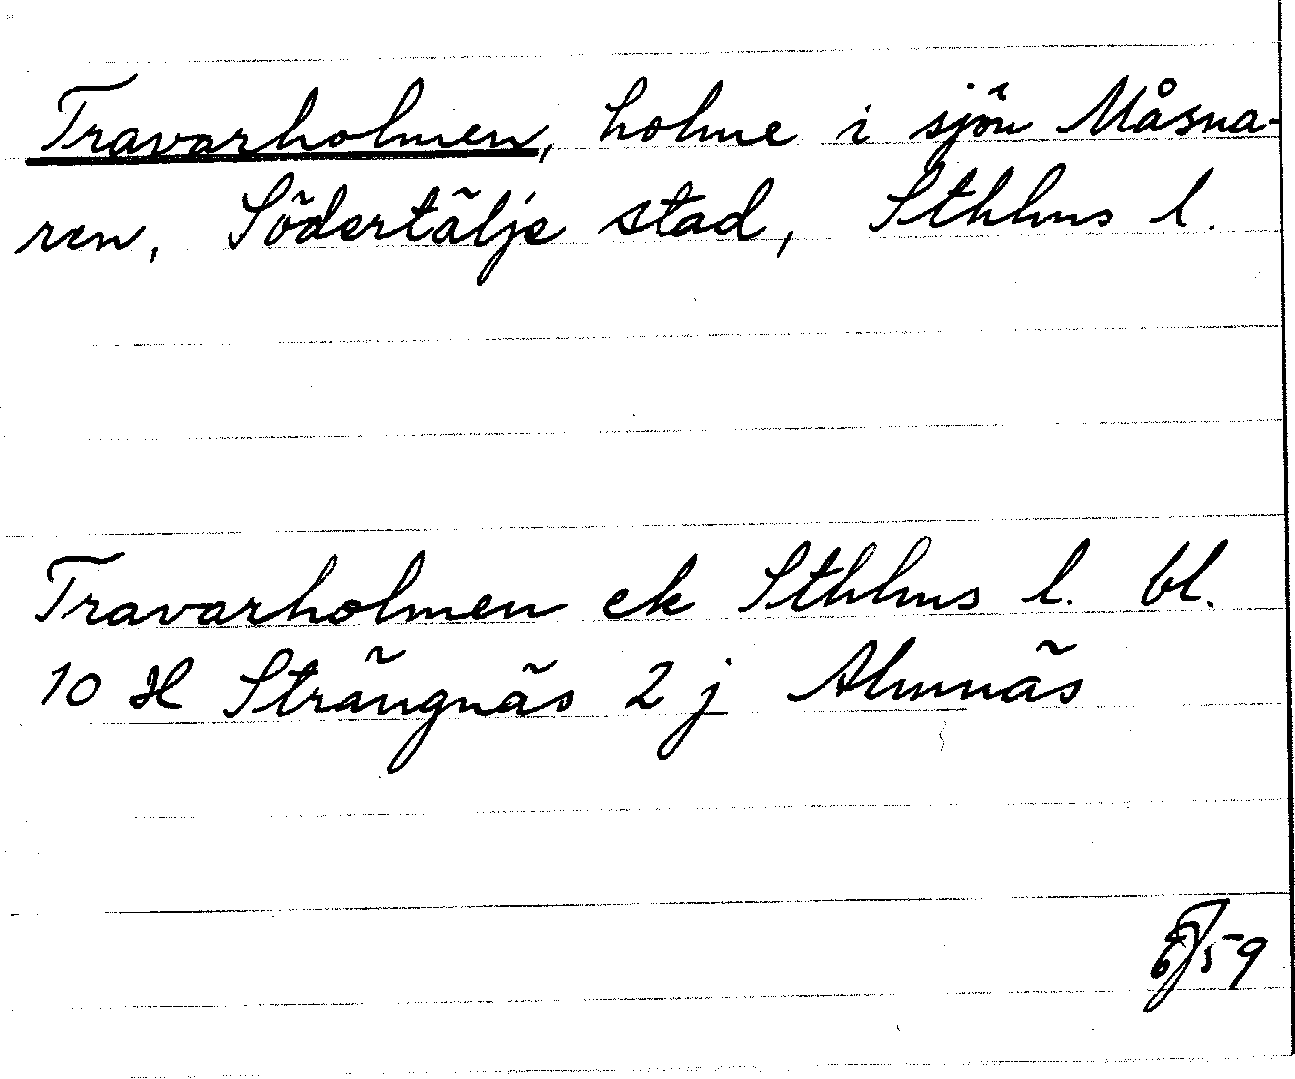 Travarholmen, holme i sjön Måsna-
ren, Södertälje stad, Sthlms l.
Travarholmen ek Sthlms l. bl.
10 H Strängnäs 2 j Almnäs
59